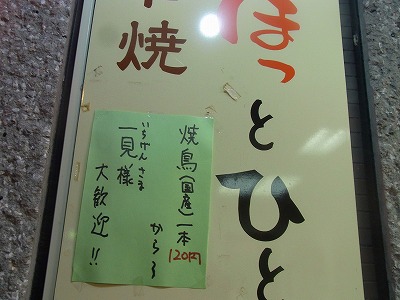 ほっとひと
焼
焼鳥(国産)一本
120円
から
いちげんさま
一見様
大歓迎!!